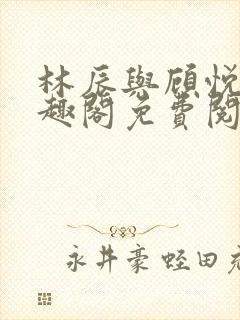 林辰與顧悅
趣閣免費閱
永井豪蛭田充